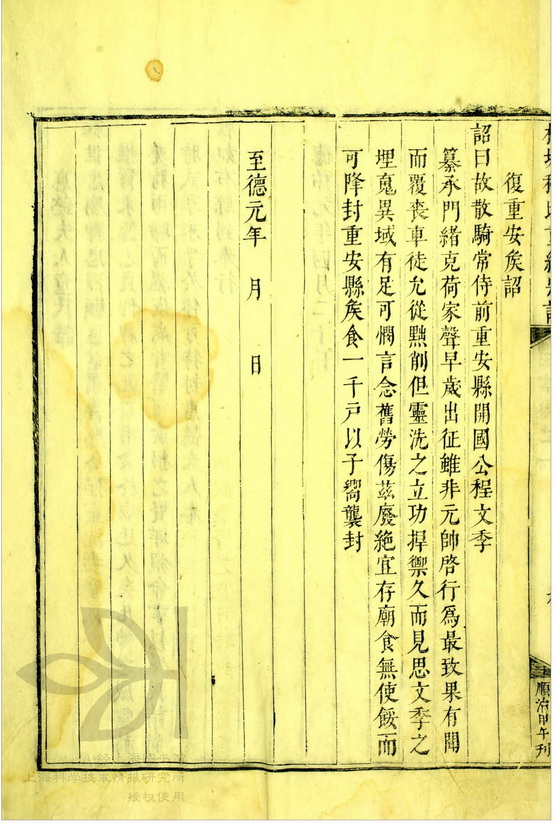 復重安矦詔
詔曰故散騎常侍前重安縣開國公程文季
纂承門緒克荷家聲早歲出征雖非元帥啓行爲最致果有聞
而覆喪車徒允從黜削但靈洗之立功捍禦久而見思文季之
埋䰟異域有足可憫言念舊勞傷茲廢絶宜存廟食無使餒而
可降封重安縣矦食一千戸以子嚮襲封
至德元年　月　日
順治甲午刊
上海科学技术情报研究所
授权使用